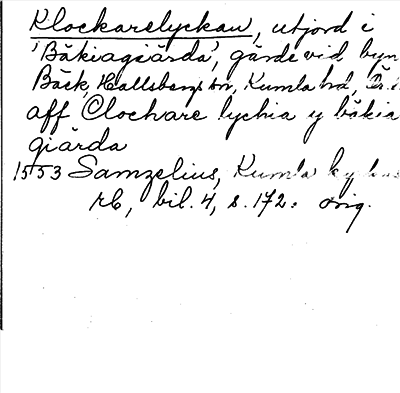 Klockarelyckan, utjord i
'Bäkiagiärda', gärde vid byn
Bäck, Hallsbergs sn, Kumla hd,
aff Clockare lychia y bäkia
giärda
1553 Samzelius, Kumla kyrkas
rb, bil. 4, s. 172. orig.